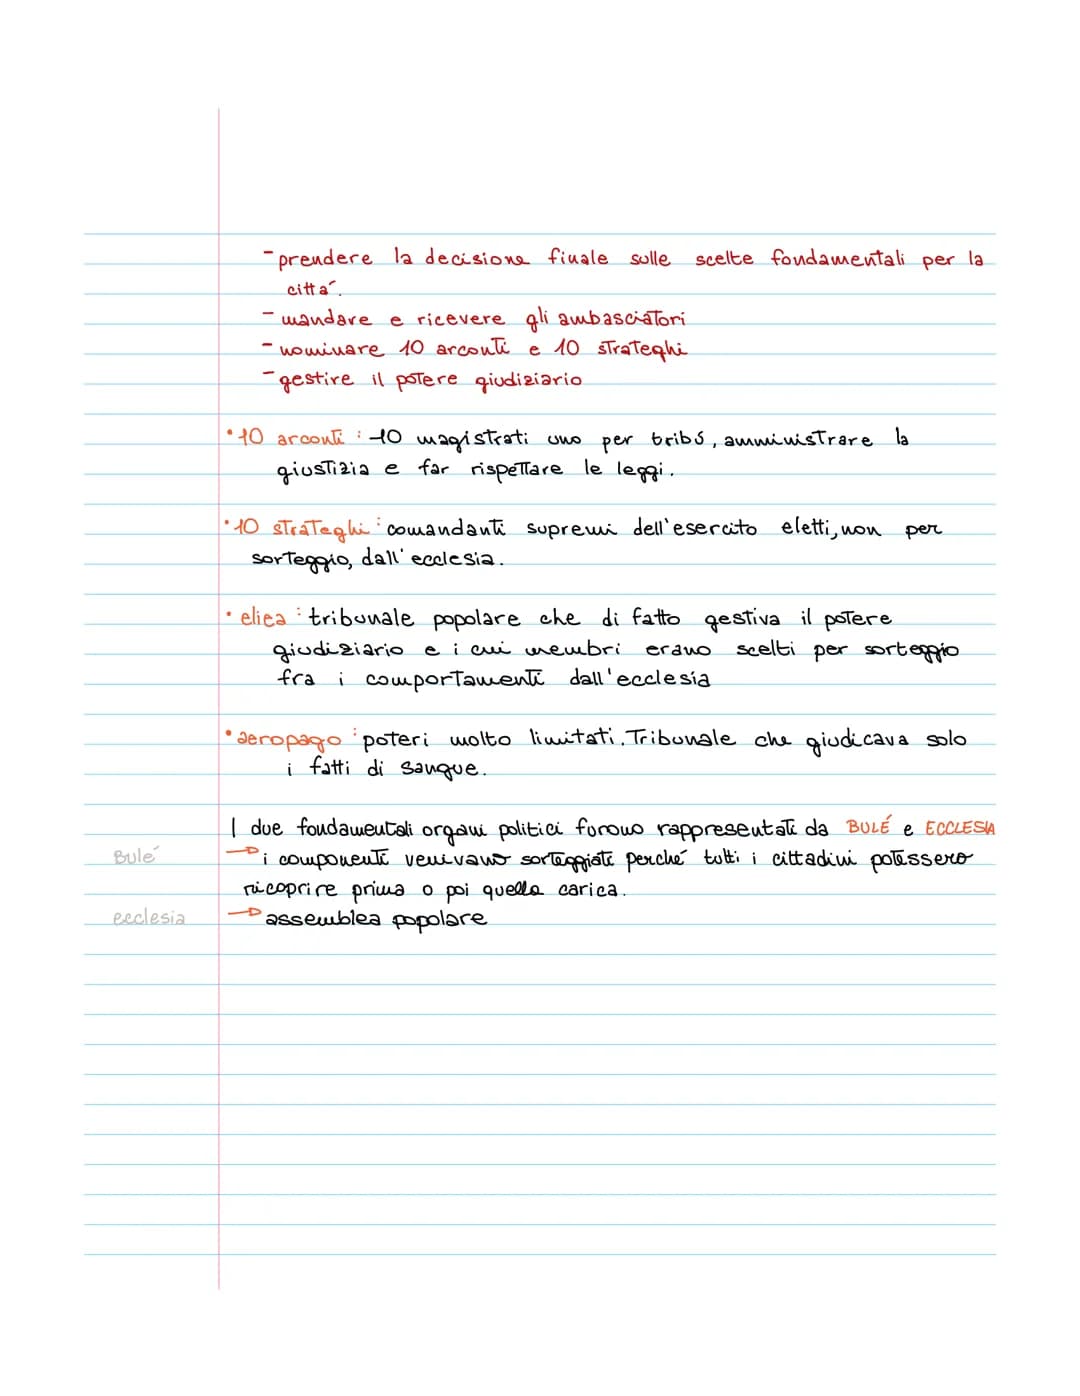 - prendere la decisione finale sulle scelte fondamentali per la
cittá.
- mandare e ricevere gli ambasciatori
- nominare 10 arconti e 10 strateghi
- gestire il potere giudiziario
• 10 arconti : 10 magistrati uno per tribú, amministrare la
giustizia e far rispettare le leggi.
• 10 strateghi : comandanti supremi dell'esercito eletti, non per
sorteggio, dall'ecclesia.
• eliea : tribunale popolare che di fatto gestiva il potere
giudiziario e i cui membri erano scelti per sorteggio
fra i comportamenti dall'ecclesia
• aeropago : poteri molto limitati. Tribunale che giudicava solo
i fatti di sangue.
I due fondamentali organi politici furono rappresentati da BULÉ e ECCLESIA
Bulé → i componenti venivano sorteggiati perché tutti i cittadini potessero
ricoprire prima o poi quella carica.
ecclesia → assemblea popolare